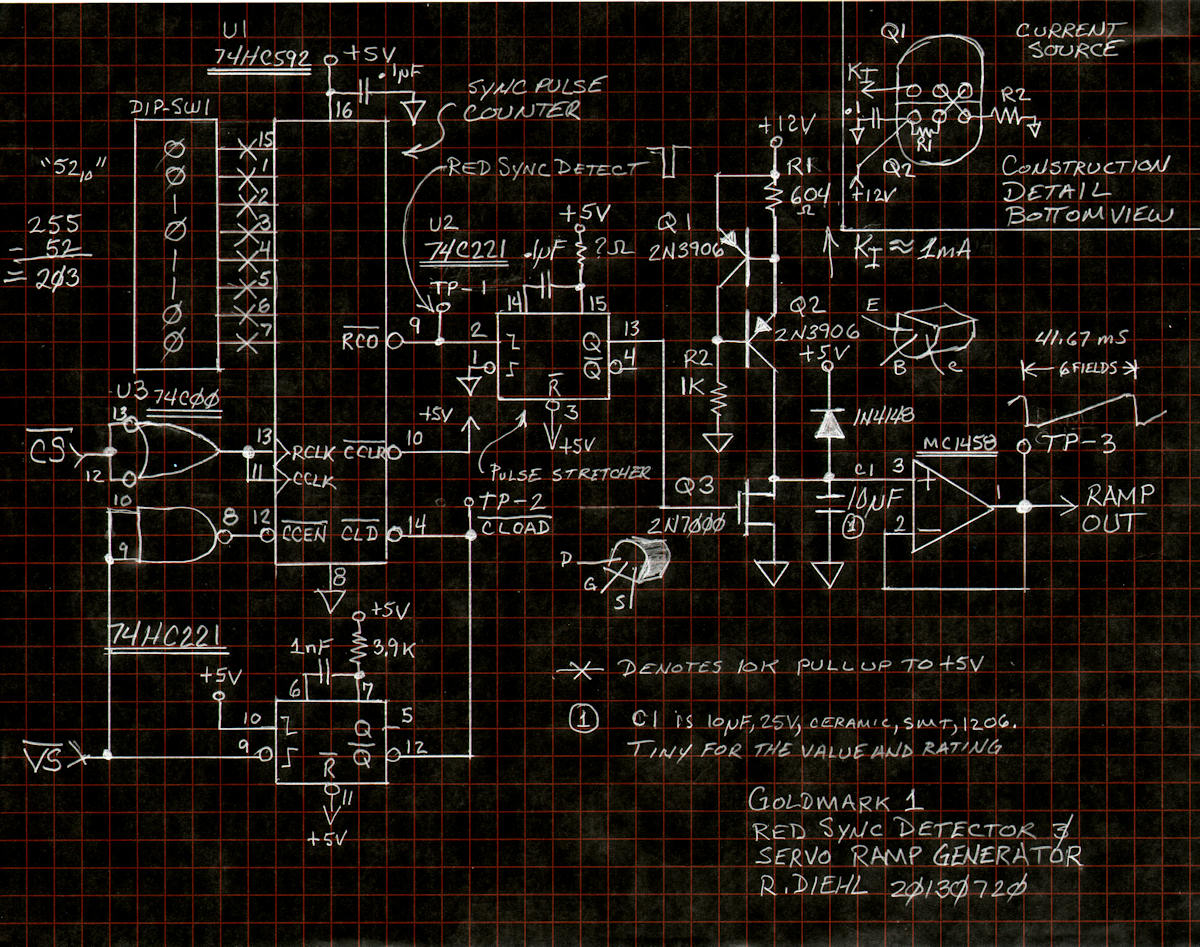 U1
74HC592
+5V
.1µF
16
SYNC PULSE
COUNTER
DIP-SW1
"52₁₀"
255
- 52
= 2Ø3
Ø
Ø
|
Ø
|
|
Ø
Ø
15
1
2
3
4
5
6
7
RED SYNC DETECT
U2
74C221
TP-1
.1µF
+5V
?Ω
14
15
R̅C̅O̅
9
2
1
Q
Q̅
13
4
R̅
3
+5V
PULSE STRETCHER
U3
74CØØ
C̅S̅
13
12
13
11
RCLK
CCLK
C̅C̅L̅R̅
10
+5V
10
9
8
12
C̅C̅E̅N̅
C̅L̅D̅
14
TP-2
C̅L̅O̅A̅D̅
8
74HC221
+5V
1nF
+5V
3.9K
6
7
10
9
Q
Q̅
5
12
R̅
11
+5V
V̅S̅
+12V
R1
604
Ω
Q1
2N3906
Q2
2N3906
R2
1K
K_I ≈ 1mA
E
B
C
+5V
1N4148
Q3
2N7ØØØ
D
G
S
C1
10µF
①
MC1458
3
+
2
−
1
41.67 mS
6 FIELDS
TP-3
RAMP
OUT
Q1
K_I
.1
R1
R2
Q2
+12V
CURRENT
SOURCE
CONSTRUCTION
DETAIL
BOTTOM VIEW
DENOTES 10K PULL UP TO +5V
① C1 IS 10µF, 25V, CERAMIC, SMT, 1206.
TINY FOR THE VALUE AND RATING
GOLDMARK 1
RED SYNC DETECTOR &
SERVO RAMP GENERATOR
R. DIEHL 2Ø13Ø72Ø